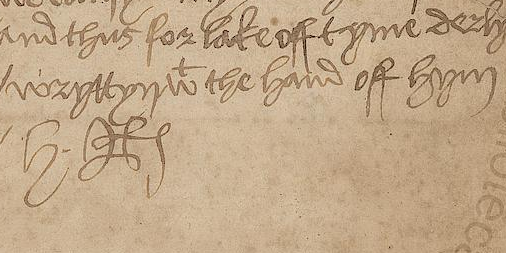 and thus for lake off tyme derly
wryttyn wt the hand off hym
H. R